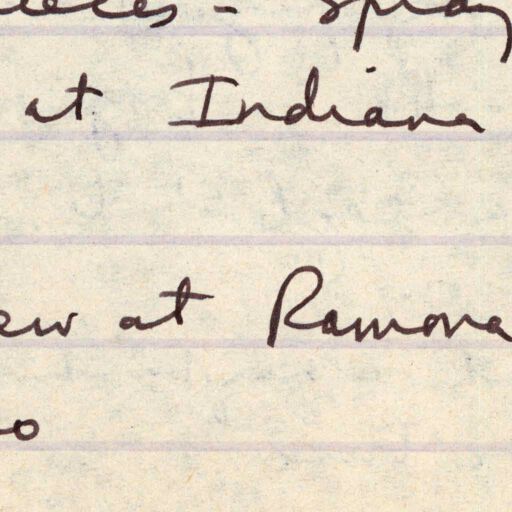 - spray
at Indiana
ew at Ramona
o